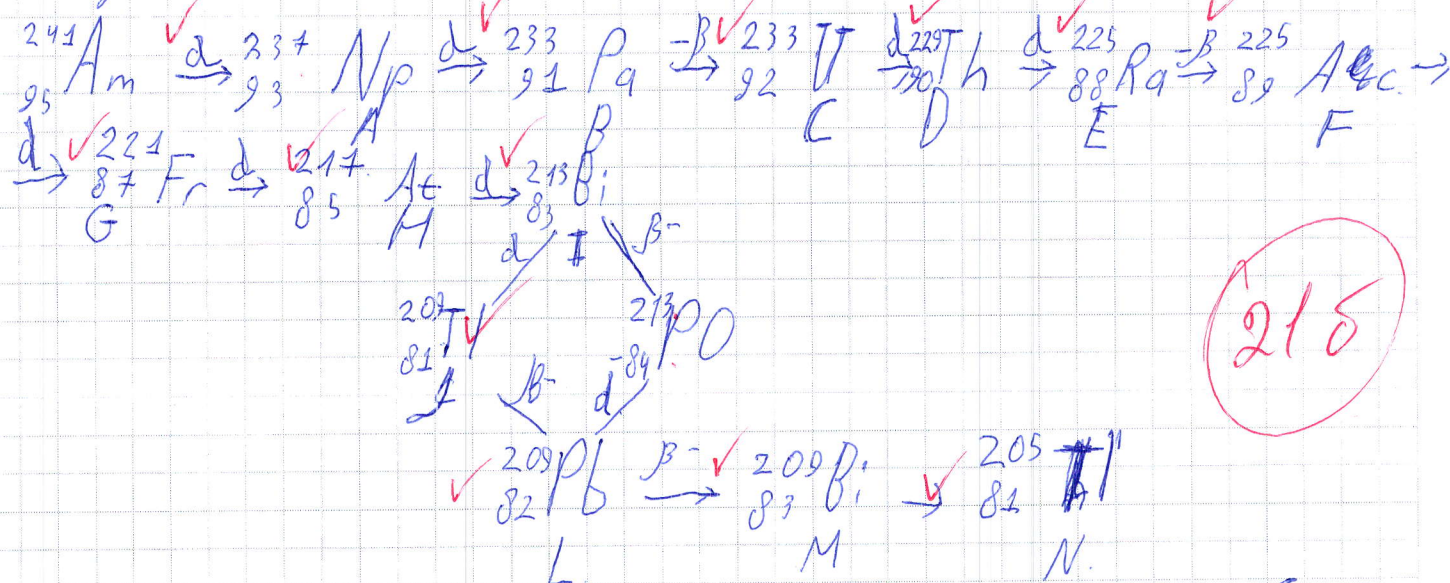 ²⁴¹₉₅Am →(α) ²³⁷₉₃Np →(α) ²³³₉₁Pa →(-β) ²³³₉₂U →(α) ²²⁹₉₀Th →(α) ²²⁵₈₈Ra →(-β) ²²⁵₈₉Ac →
A B C D E F
→(α) ²²¹₈₇Fr →(α) ²¹⁷₈₅At →(α) ²¹³₈₃Bi
G H I
α β⁻
²⁰⁹₈₁Tl ²¹³₈₄PO
J
β⁻ α
21б
²⁰⁹₈₂Pb →(β⁻) ²⁰⁹₈₃Bi → ²⁰⁵₈₁Tl
L M N.